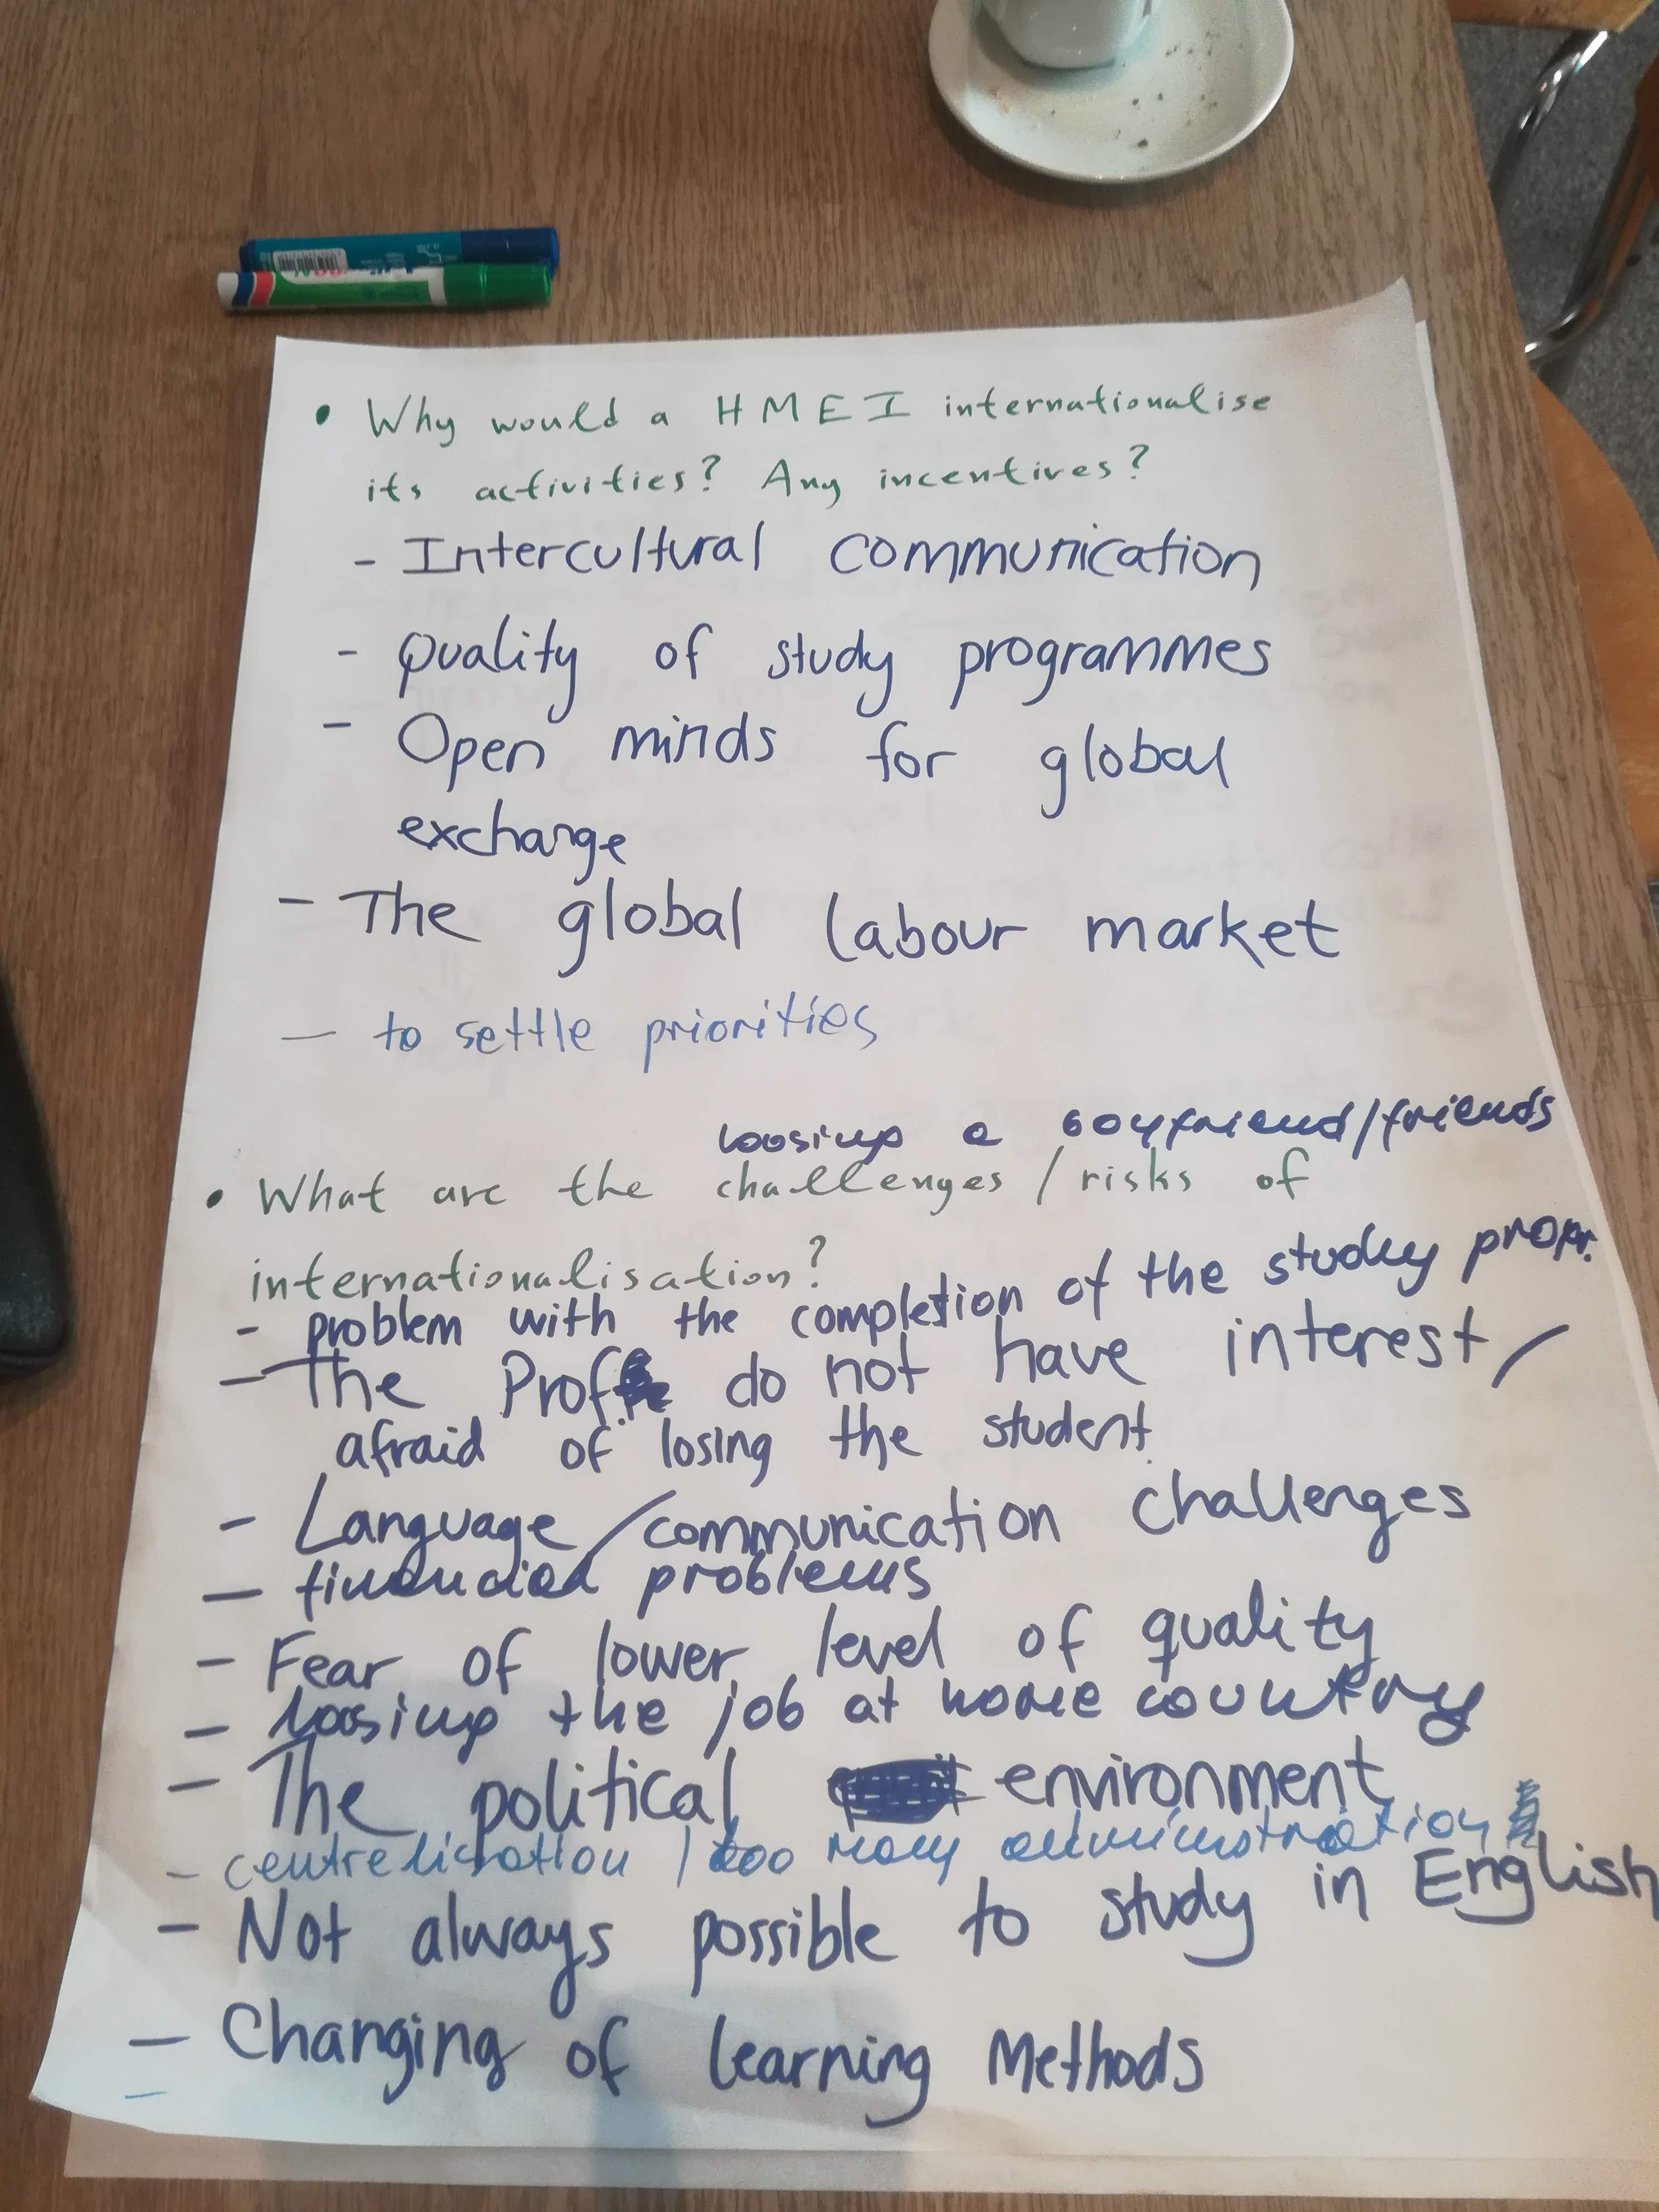 • Why would a HMEI internationalise
its activities? Any incentives?
- Intercultural communication
- Quality of study programmes
- Open minds for global
exchange
- The global labour market
- to settle priorities
loosing a boyfriend/friends
• What are the challenges / risks of
internationalisation?
- problem with the completion of the study progr.
- The Prof do not have interest/
afraid of losing the student
- Language/communication challenges
- financial problems
- Fear of lower level of quality
- loosing the job at home country
- The political environment
- centralisation / too many administration
- Not always possible to study in English
- Changing of learning Methods
-